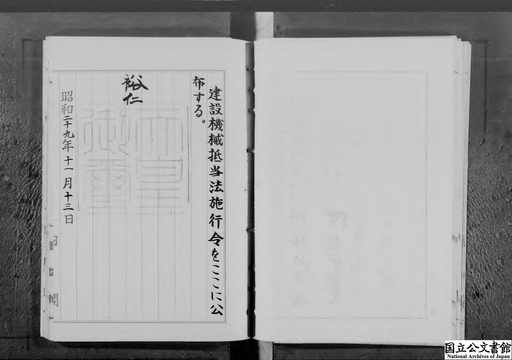 建設機械抵当法施行令をここに公
布する。
裕仁
天皇
御璽
昭和二十九年十一月十三日
国立公文書館
National Archives of Japan